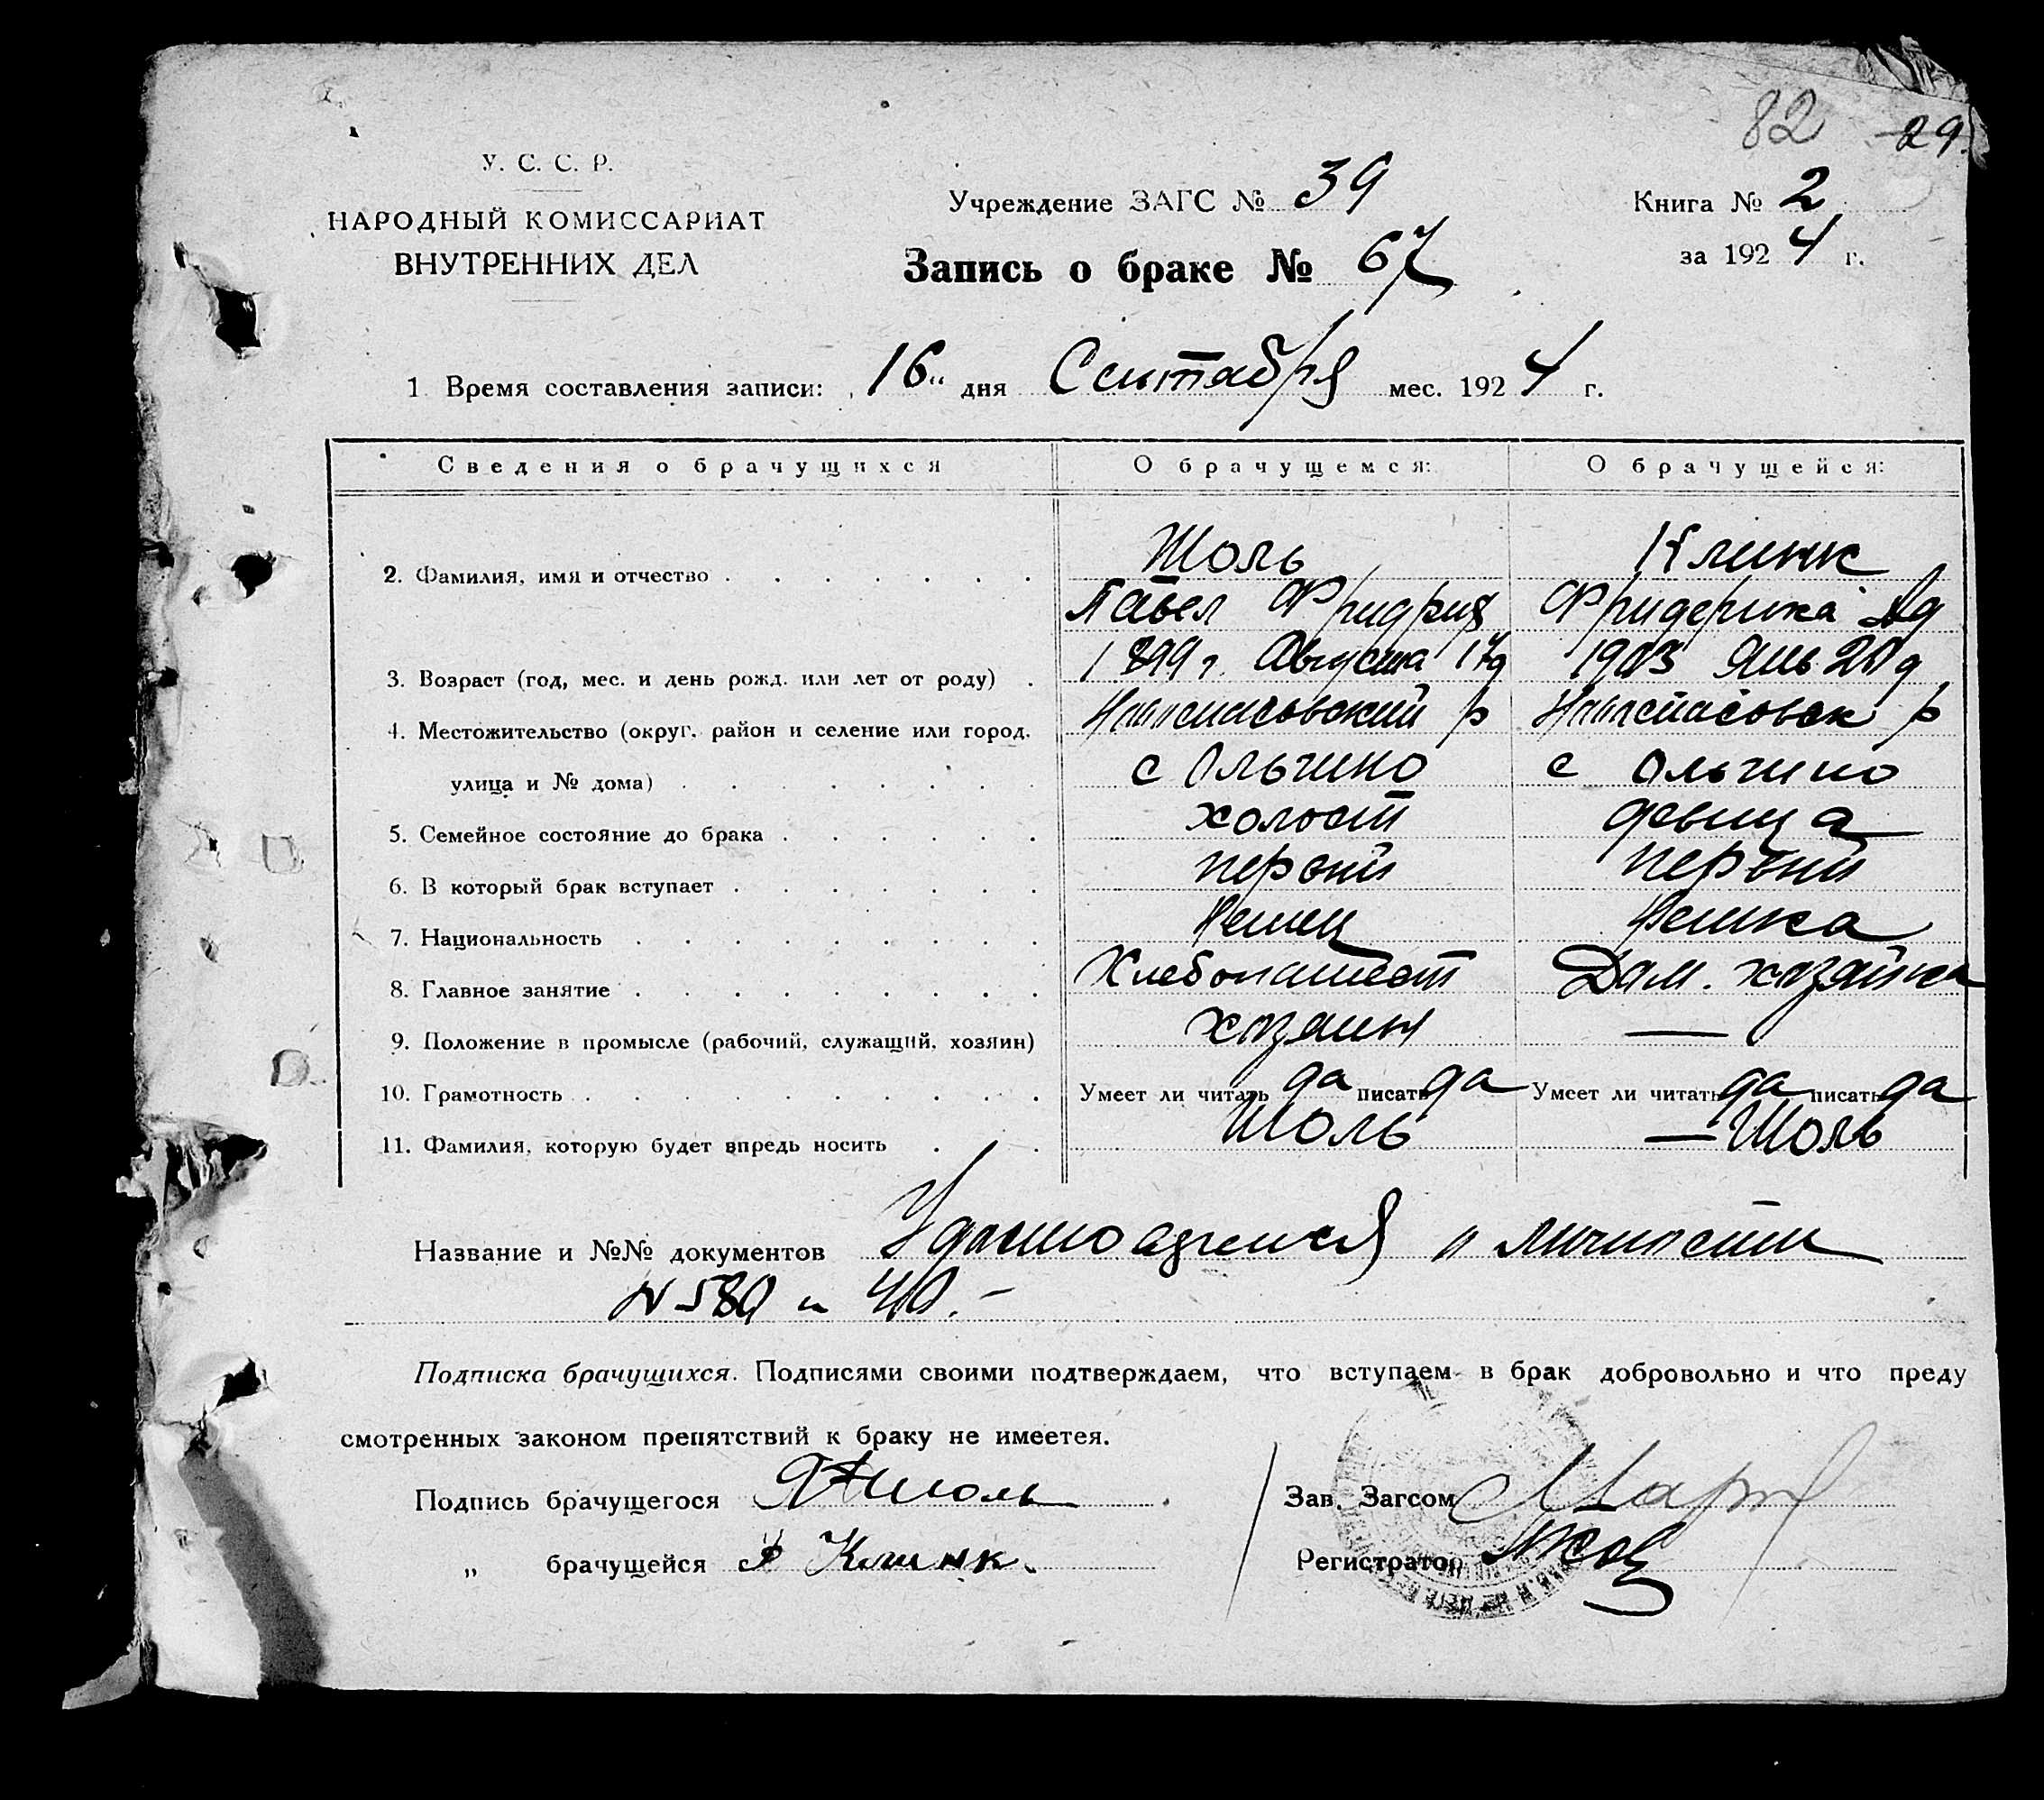 82 29.
У. С. С. Р.
НАРОДНЫЙ КОМИССАРИАТ
ВНУТРЕННИХ ДЕЛ
Учреждение ЗАГС № 39
Книга № 2
Запись о браке № 67
за 1924 г.
1 Время составления записи: 16 дня Сентября мес. 1924 г.
Сведения о брачущихся О брачущемся: О брачущейся:
Шоль Клинк
2. Фамилия, имя и отчество
Павел Фридрих Фридерика Ад
3. Возраст (год, мес. и день рожд. или лет от роду) 1899 г. Августа 17д 1903 Янв 20 д
4. Местожительство (округ, район и селение или город, р р
улица и № дома) с Ольгино с Ольгино
5. Семейное состояние до брака холост девица
6. В который брак вступает первый первый
7. Национальность Немец Немка
8. Главное занятие Хлебопашест Дом. хозяйка
9. Положение в промысле (рабочий, служащий, хозяин) хозяин —
10. Грамотность Умеет ли читать да писать да Умеет ли читать да писать да
11. Фамилия, которую будет впредь носить Шоль — Шоль
Название и №№ документов о личности
N 580 и
Подписка брачущихся. Подписями своими подтверждаем, что вступаем в брак добровольно и что преду
смотренных законом препятствий к браку не имеетея.
Подпись брачущегося Шоль
Зав. Загсом
„ брачущейся Клинк.
Регистратор